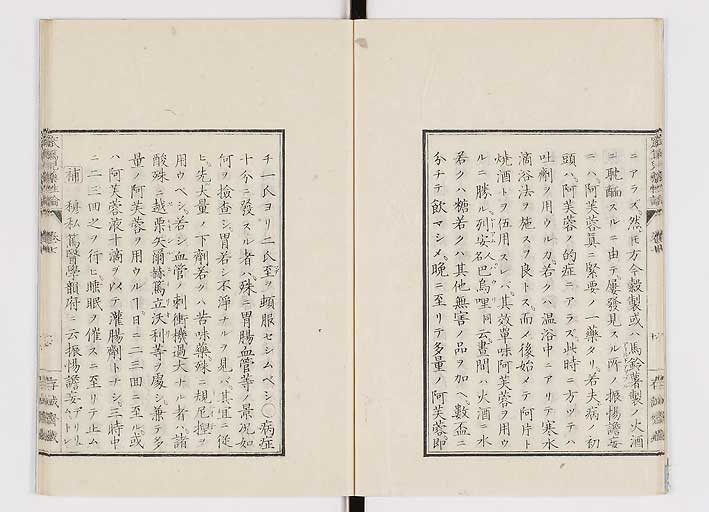 ニアラズ。然𪜈方今穀製或ハ馬鈴薯製ノ火酒
ニ耽酗スルニ由テ屢發見スル所ノ振愓譫妄
ニハ。阿芙蓉眞ニ緊要ノ一藥タリ。若夫病ノ初
頭ハ。阿芙蓉ノ的症ニアラズ。此時ニ方ツテハ
吐劑ヲ用ウルカ。若クハ温浴中ニアリテ寒水
滴浴法ヲ施スヲ良トス。而メ後始メテ阿片ト
燒酒トヲ伍用スレバ。其效單味阿芙蓉ヲ用ウ
ルニ勝ル。列安人名巴烏哩同云晝間ハ火酒ニ水
若クハ糖若クハ其他無害ノ品ヲ加ヘ。數盃ニ
分チテ飲マシメ。晩ニ至リテ多量ノ阿芙蓉即
チ一氏ヨリ二氏至ヲ頓服セシムベシ○病症
十今ニ發スル者ハ。殊ニ胃腸血管等ノ景况如
何ヲ撿查シ。胃若シ不淨ナルヲ見バ。其宜ニ從
ヒ。先大量ノ下劑若クハ苦味藥。殊ニ規尼涅ヲ
用ウベシ。若シ血管ノ刺衝機過大ナル者ハ。諸
酸殊ニ越栗矢爾赫篤立沃利等ヲ處シ。兼テ多
量ノ阿芙蓉ヲ用ウル一日ニ二三回ニ至ル。或
ハ阿芙蓉液十滴ヲ以テ灌腸劑トナシ。三時中
ニ二三回之ヲ行ヒ。睡眠ヲ催スニ至リテ止ム
補 穆私篤醫學韻府ニ云振愓譫妄